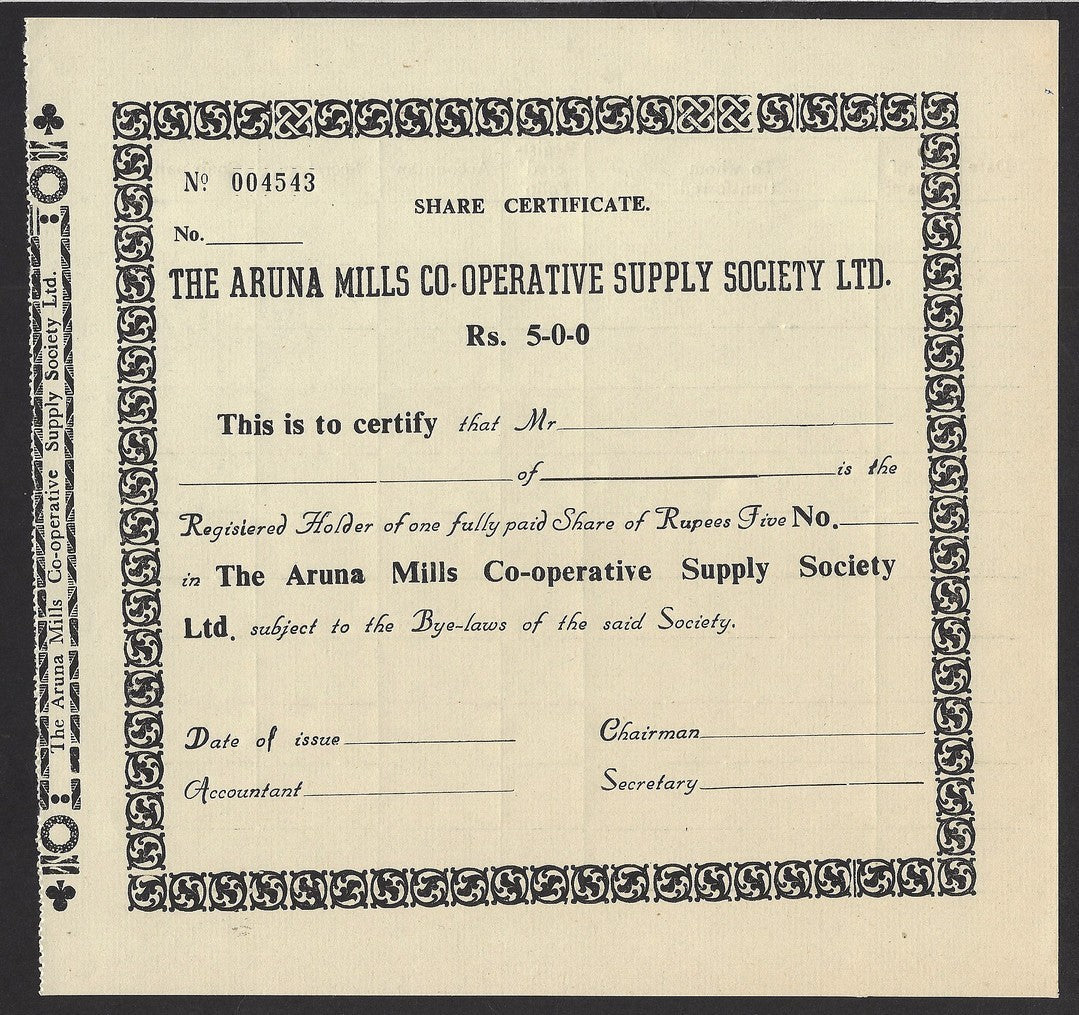 Nº 004543
SHARE CERTIFICATE.
No.
THE ARUNA MILLS CO-OPERATIVE SUPPLY SOCIETY LTD.
Rs. 5-0-0
This is to certify that Mr
of is the
Registered Holder of one fully paid Share of Rupees Five No.
in The Aruna Mills Co-operative Supply Society
Ltd. subject to the Bye-laws of the said Society.
Date of issue Chairman
Accountant Secretary
The Aruna Mills Co-operative Supply Society Ltd.